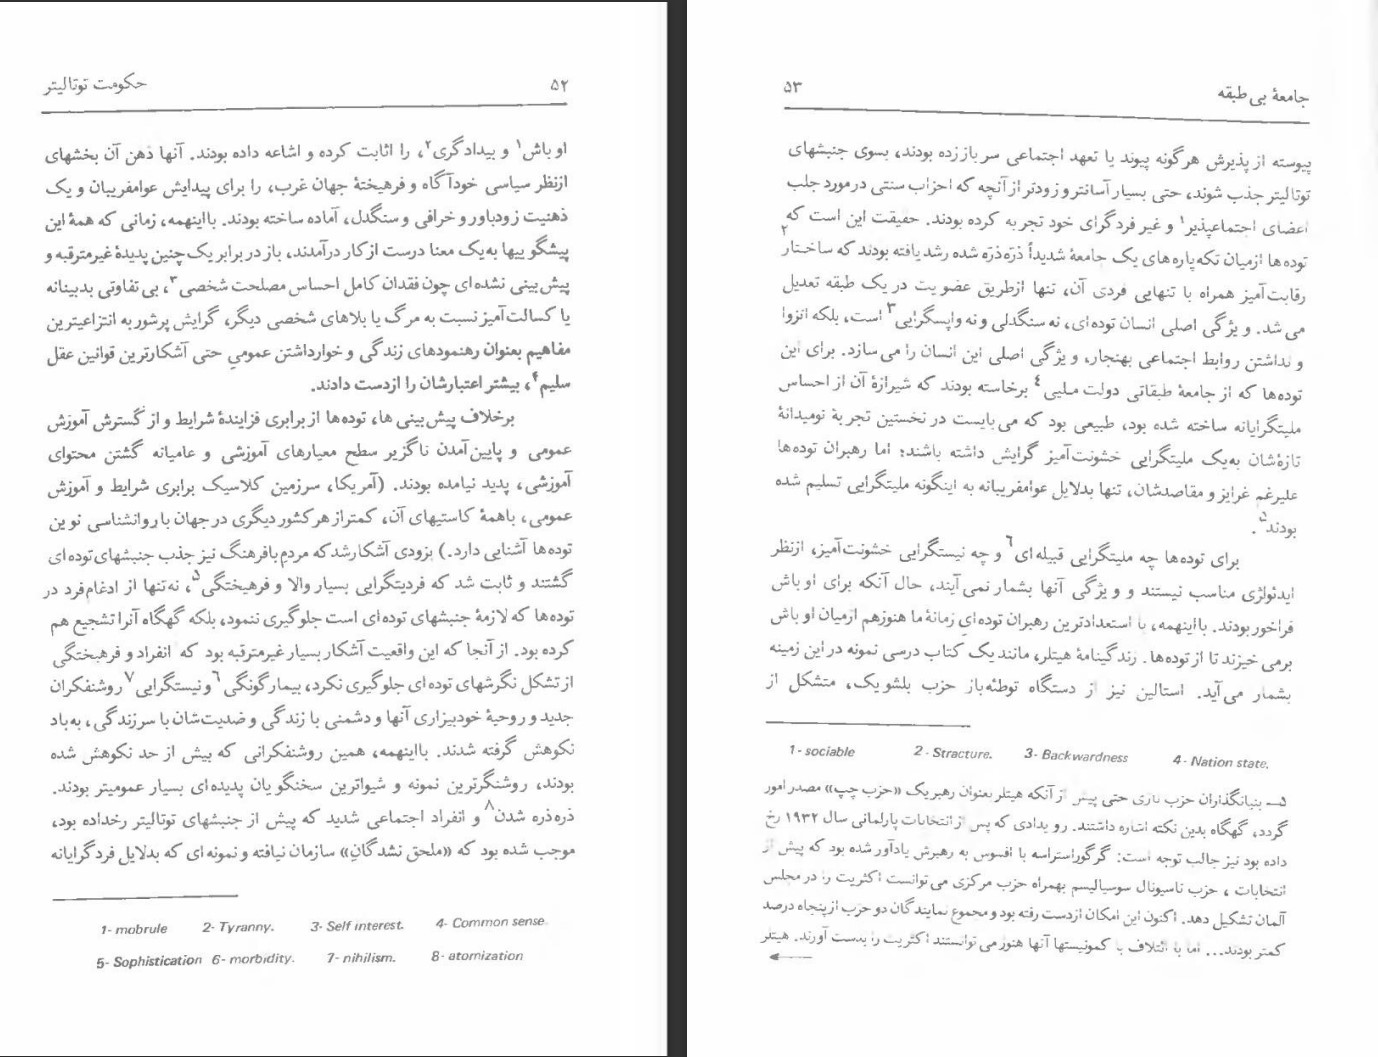 ۵۲
حکومت توتالیتر
اوباش۱ و بیدادگری۲، را اثابت کرده و اشاعه داده بودند. آنها ذهن آن بخشهای
ازنظر سیاسی خودآگاه و فرهیختهٔ جهان غرب، را برای پیدایش عوامفریبان و یک
ذهنیت زودباور و خرافی و سنگدل، آماده ساخته بودند. بااینهمه، زمانی که همهٔ این
پیشگوییها به‌یک معنا درست از کار درآمدند، باز در برابر یک چنین پدیدهٔ غیرمترقبه و
پیش‌بینی نشده‌ای چون فقدان کامل احساس مصلحت شخصی۳، بی‌تفاوتی بدبینانه
یا کسالت‌آمیز نسبت به مرگ یا بلاهای شخصی دیگر، گرایش پرشور به انتزاعیترین
مفاهیم بعنوان رهنمودهای زندگی و خوارداشتن عمومیِ حتی آشکارترین قوانین عقل
سلیم۴، بیشتر اعتبارشان را ازدست دادند.
برخلاف پیش‌بینی ها، توده‌ها از برابری فزایندهٔ شرایط و از گسترش آموزش
عمومی و پایین‌آمدن ناگزیر سطح معیارهای آموزشی و عامیانه گشتن محتوای
آموزشی، پدید نیامده بودند. (آمریکا، سرزمین کلاسیک برابری شرایط و آموزش
عمومی، باهمهٔ کاستیهای آن، کمتر از هر کشور دیگری در جهان با روانشناسی نوین
توده‌ها آشنایی دارد.) بزودی آشکار شد که مردم بافرهنگ نیز جذب جنبشهای توده‌ای
گشتند و ثابت شد که فردیتگرایی بسیار والا و فرهیختگی۵، نه‌تنها از ادغام فرد در
توده‌ها که لازمهٔ جنبشهای توده‌ای است جلوگیری ننمود، بلکه گهگاه آنرا تشجیع هم
کرده بود. از آنجا که این واقعیت آشکار بسیار غیرمترقبه بود که انفراد و فرهیختگی
از تشکل نگرشهای توده‌ای جلوگیری نکرد، بیمارگونگی۶ و نیستگرایی۷ روشنفکران
جدید و روحیهٔ خودبیزاری آنها و دشمنی با زندگی و ضدیت‌شان با سرزندگی، به‌باد
نکوهش گرفته شدند. بااینهمه، همین روشنفکرانی که بیش از حد نکوهش شده
بودند، روشنگرترین نمونه و شیواترین سخنگویان پدیده‌ای بسیار عمومیتر بودند.
ذره‌ذره شدن۸ و انفراد اجتماعی شدید که پیش از جنبشهای توتالیتر رخداده بود،
موجب شده بود که «ملحق نشدگانِ» سازمان نیافته و نمونه‌ای که بدلایل فردگرایانه
1- mobrule 2- Tyranny. 3- Self interest. 4- Common sense
5- Sophistication 6- morbidity. 7- nihilism. 8- atomization
جامعهٔ بی‌طبقه
۵۳
پیوسته از پذیرش هرگونه پیوند یا تعهد اجتماعی سر باز زده بودند، بسوی جنبشهای
توتالیتر جذب شوند، حتی بسیار آسانتر و زودتر از آنچه که احزاب سنتی درمورد جلب
اعضای اجتماعپذیر۱ و غیر فردگرای خود تجربه کرده بودند. حقیقت این است که
توده‌ها ازمیان تکه‌پاره‌های یک جامعهٔ شدیداً ذرّه‌ذرّه شده رشد یافته بودند که ساختار۲
رقابت‌آمیز همراه با تنهایی فردی آن، تنها ازطریق عضویت در یک طبقه تعدیل
می‌شد. ویژگی اصلی انسان توده‌ای، نه سنگدلی و نه واپسگرایی۳ است، بلکه انزوا
و نداشتن روابط اجتماعی بهنجار، ویژگی اصلی این انسان را می‌سازد. برای این
توده‌ها که از جامعهٔ طبقاتی دولت ملیی۴ برخاسته بودند که شیرازهٔ آن از احساس
ملیتگرایانه ساخته شده بود، طبیعی بود که می‌بایست در نخستین تجربهٔ نومیدانهٔ
تازه‌شان به‌یک ملیتگرایی خشونت‌آمیز گرایش داشته باشند؛ اما رهبران توده‌ها
علیرغم غرایز و مقاصدشان، تنها بدلایل عوامفریبانه به اینگونه ملیتگرایی تسلیم شده
بودند۵.
برای توده‌ها چه ملیتگرایی قبیله‌ای۶ و چه نیستگرایی خشونت‌آمیز، ازنظر
ایدئولژی مناسب نیستند و ویژگی آنها بشمار نمی‌آیند، حال آنکه برای اوباش
فراخور بودند. بااینهمه، با استعدادترین رهبران توده‌ایِ زمانهٔ ما هنوزهم ازمیان اوباش
برمی‌خیزند تا از توده‌ها. زندگینامهٔ هیتلر، مانند یک کتاب درسی نمونه در این زمینه
بشمار می‌آید. استالین نیز از دستگاه توطئه‌باز حزب بلشویک، متشکل از
1- sociable 2- Stracture. 3- Backwardness 4- Nation state.
۵ــ بنیانگذاران حزب نازی حتی پیش از آنکه هیتلر بعنوان رهبر یک «حزب چپ» مصدر امور
گردد، گهگاه بدین نکته اشاره داشتند. رویدادی که پس از انتخابات پارلمانی سال ۱۹۳۲ رخ
داده بود نیز جالب توجه است: گرگوراستراسه با افسوس به رهبرش یادآور شده بود که پیش از
انتخابات، حزب ناسیونال سوسیالیسم بهمراه حزب مرکزی می‌توانست اکثریت را در مجلس
آلمان تشکیل دهد. اکنون این امکان ازدست رفته بود و مجموع نمایندگان دو حزب از پنجاه درصد
کمتر بودند... اما با ائتلاف با کمونیستها آنها هنوز می‌توانستند اکثریت را بدست آورند. هیتلر